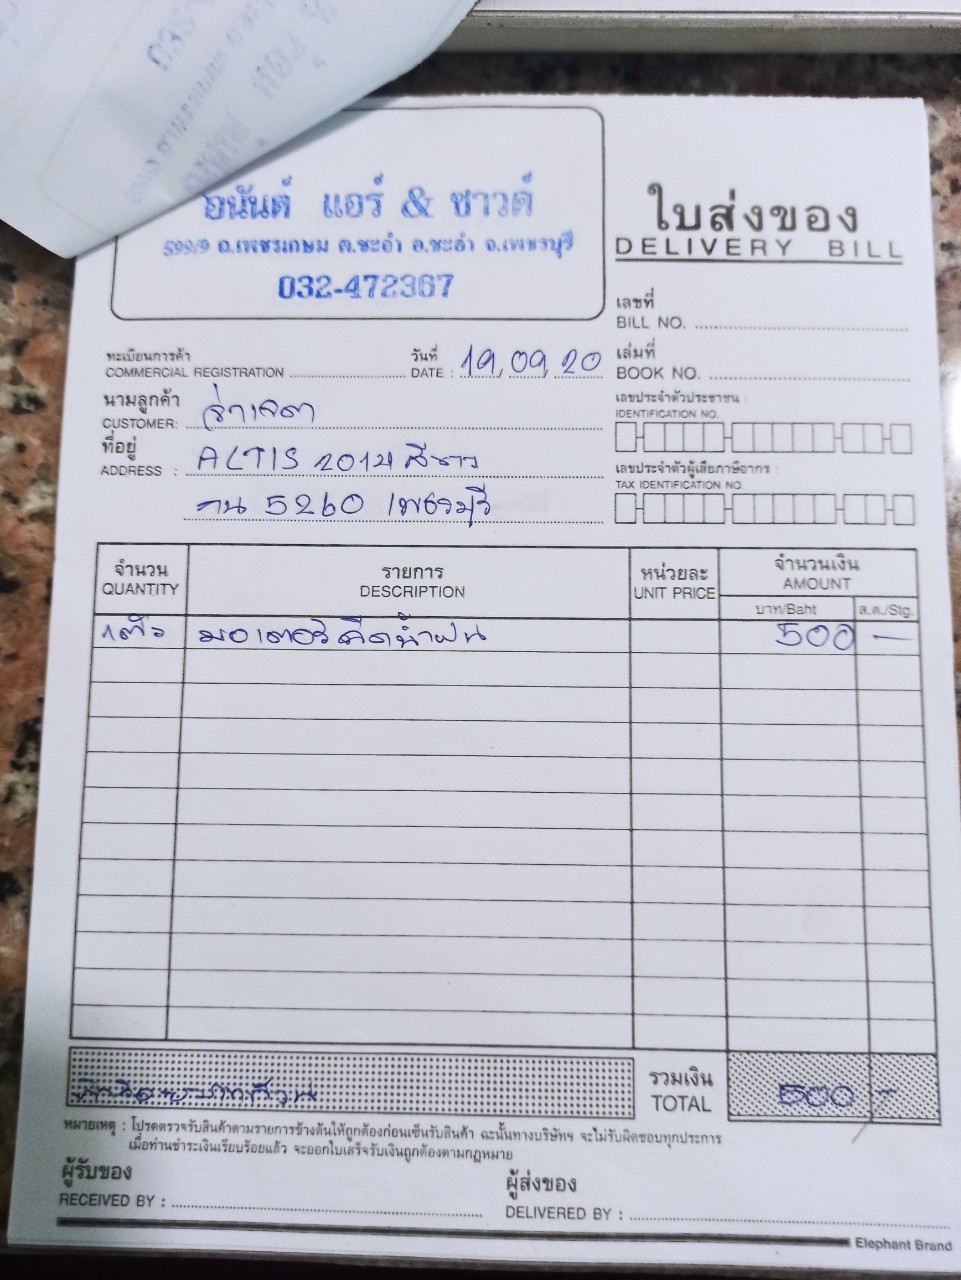 อนันต์ แอร์ & ซาวด์
599/9 ถ.เพชรเกษม ต.ชะอำ อ.ชะอำ จ.เพชรบุรี
032-472367
ใบส่งของ
DELIVERY BILL
เลขที่
BILL NO.
ทะเบียนการค้า
COMMERCIAL REGISTRATION
วันที่
DATE : 19, 09, 20
เล่มที่
BOOK NO.
นามลูกค้า
CUSTOMER:
เลขประจำตัวประชาชน :
IDENTIFICATION NO.
ที่อยู่
ADDRESS : ALTIS 2014 สีขาว
5260 เพชรบุรี
เลขประจำตัวผู้เสียภาษีอากร :
TAX IDENTIFICATION NO.
จำนวน
QUANTITY
รายการ
DESCRIPTION
หน่วยละ
UNIT PRICE
จำนวนเงิน
AMOUNT
บาท/Baht
ส.ต./Stg.
1 ตัว มอเตอร์ฉีดน้ำฝน 500 -
รวมเงิน
TOTAL
500 -
หมายเหตุ : โปรดตรวจรับสินค้าตามรายการข้างต้นให้ถูกต้องก่อนเซ็นรับสินค้า ฉะนั้นทางบริษัทฯ จะไม่รับผิดชอบทุกประการ
เมื่อท่านชำระเงินเรียบร้อยแล้ว จะออกใบเสร็จรับเงินถูกต้องตามกฎหมาย
ผู้รับของ
RECEIVED BY :
ผู้ส่งของ
DELIVERED BY :
Elephant Brand